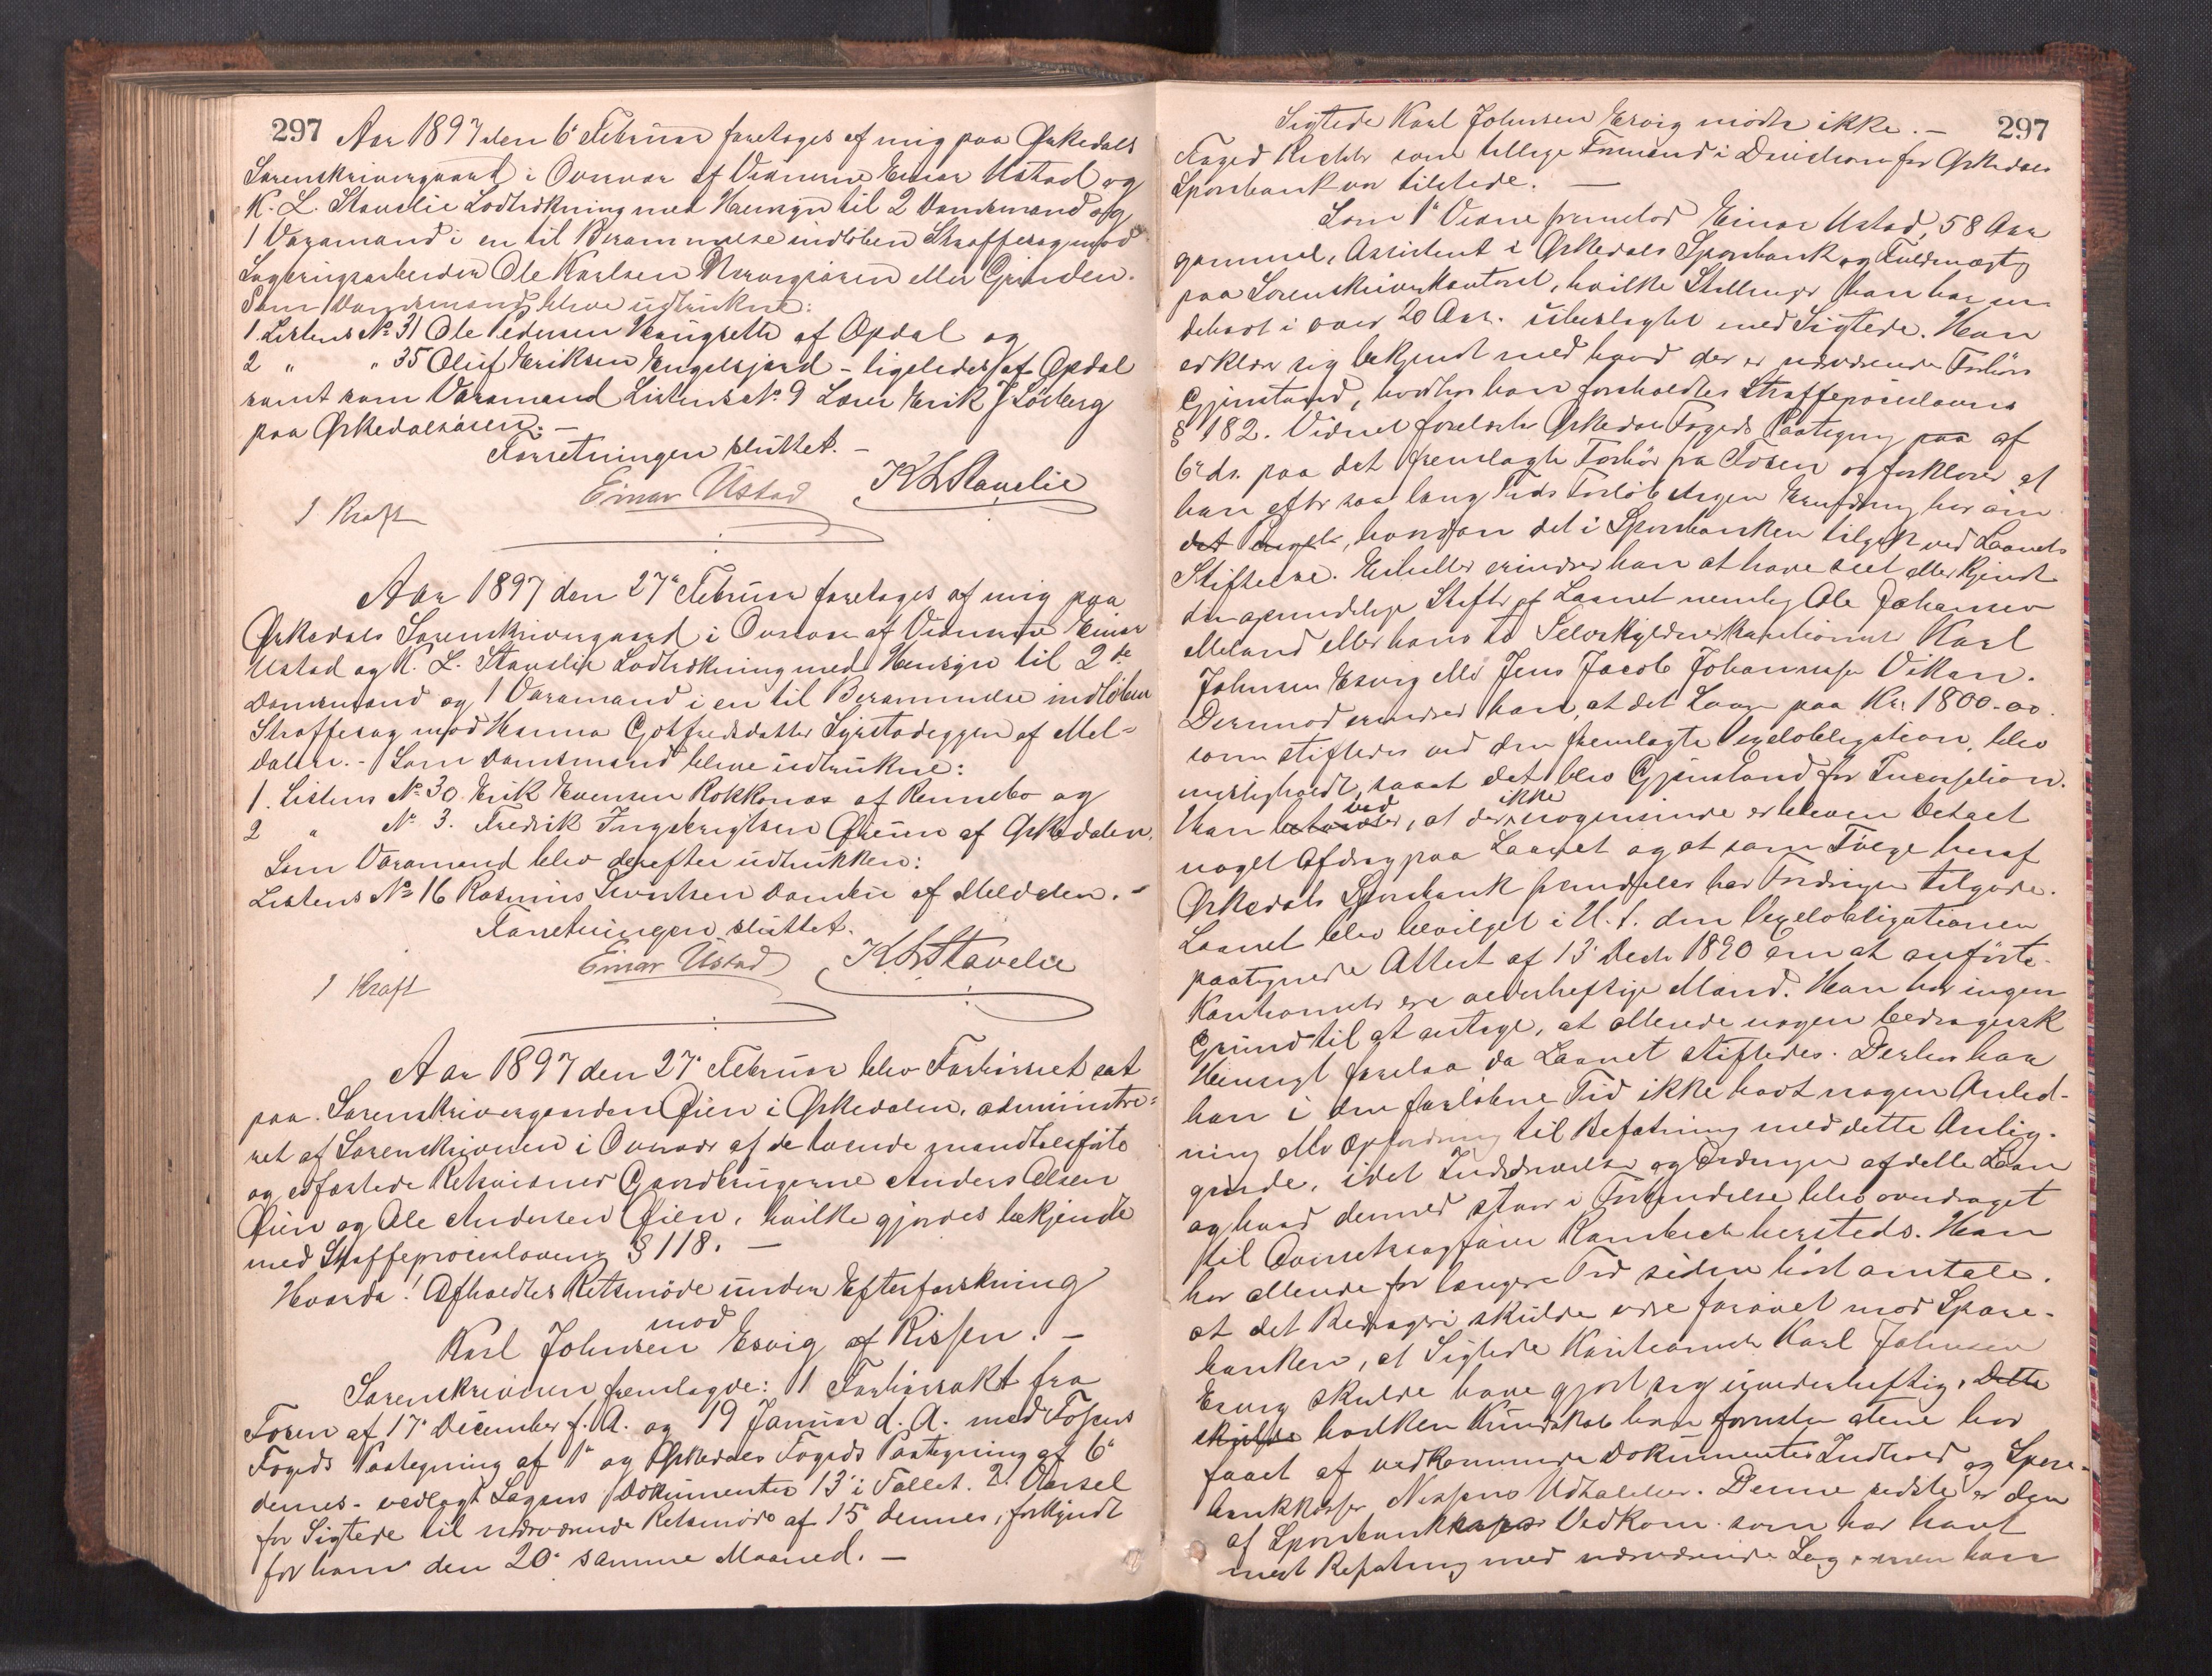 297 Aar 1897 den 6te Februar foretoges af mig paa Ørkedals
Sorenskrivergaard i Overvær af Vidnerne Einar Ustad og
K. L. Stavelie Lodtrækning med Hensyn til 2 Domsmænd og
1 Varamand i en til Berammelse indløben Straffesag mod
Ole Karlsen eller Grinden.
Som Domsmænd bleve udtrukne:
1. Listens No 31 Ole Pedersen af Opdal og
2 " " 35 Oluf Eriksen Engelsjord - ligeledes af Opdal
samt som Varamand Listens No 9 Lærer Erik J Løsberg
paa Ørkedalsøren. -
Forretningen sluttet. -
J Kraft Einar Ustad K L Stavelie
Aar 1897 den 27de Februar foretoges af mig paa
Ørkedals Sorenskrivergaard i Overvær af Vidnerne Einar
Ustad og K. L. Stavelie Lodtrækning med Hensyn til 2de
Domsmænd og 1 Varamand i en til Berammelse indløben
Straffesag mod Hanna Gotfredsdatter Syrstadeggen af Mel-
dalen. - Som Domsmænd bleve udtrukne:
1. Listens No 30 Erik Evensen Rokkones af Rennebo og
2 " No 3. Fredrik Ingebrigtsen Øien af Ørkedalen.
Som Varamand blev derefter udtrukken:
Listens No 16 Rasmus Sivertsen af Meldalen. -
Forretningen sluttet.
J Kraft Einar Ustad K L Stavelie
Aar 1897 den 27de Februar blev Forhørsret sat
paa Sorenskrivergaarden Øien i Ørkedalen, administre=
ret af Sorenskriveren i Overvær af de tvende mandtalsførte
og edfæstede Retsvidner Gaardbrugerne Anders Olsen
Øien og Ole Andersen Øien, hvilke gjordes bekjendte
med Straffeproceslovens § 118. -
Hvorda! Afholdtes Retsmøde under Efterforskning
mod
Karl Johnsen Esvig af Rissen. -
Sorenskriveren fremlagde: 1 Forhørsakt fra
Fosen af 17de December f. A. og 19 Januar d. A. med Fosens
Fogeds Paategning af 1ste og Ørkedals Fogeds Paategning af 6te
dennes - vedlagt Sagens Dokumenter 13 i Tallet. 2. Varsel
for Sigtede til nærværende Retsmøde af 15de dennes, forkyndt
for ham den 20de samme Maaned. -
297
Sigtede Karl Johnsen Esvig mødte ikke. -
Foged Richter som tillige Formand i Direktionen for Ørkedals
Sparebank var tilstede. -
Som 1ste Vidne fremstod Einar Ustad, 58 Aar
gammel, Assistent i Ørkedals Sparebank og Fuldmægtig
paa Sorenskriverkontoret, hvilke Stillinger han har in-
dehavt i over 20 Aar. ubeslægtet med Sigtede. Han
erklærer sig bekjendt med hvad der er nærværende Forhørs
Gjenstand, hvorhos han foreholdtes Straffeproceslovens
§ 182. Vidnet forelæstes Ørkedals Fogeds Paategning paa af
6te ds. paa det fremlagte Forhør fra Fosen og forklarer at
han efter saa lang Tids Forløb ingen Erindring har om
det, hvordan det i Sparebanken tilgik ved Laanets
Stiftelse. Ei heller erindrer han at have seet eller kjendt
den oprindelige Stifter af Laanet nemlig Ole Johansen
Meland eller hans to Selvskyldnerkautionister Karl
Johnsen Esvig eller Jens Jacob Johannesen Vikan.
Derimod erindrer han, at det Laan paa Kr. 1800-00.
som stiftedes ved den fremlagte Vexelobligation, blev
misligholdt, saaat det blev Gjenstand for Incassation.
Han ved, at der ikke nogensinde er bleven betalt
noget Afdrag paa Laanet og at som Følge heraf
Ørkedals Sparebank fremdeles har Fordringen tilgode.
Laanet blev bevilget i H. t. den Vexelobligationen
paategnede Attest af 13de Decbr 1890 om at anførte
Kautionister ere vederheftige Mænd. Han har ingen
Grund til at antage, at allerede nogen bedragersk
Hensigt forelaa da Laanet stiftedes. Derhos har
han i den forløbne Tid ikke havt nogen Anled-
ning eller Opfordring til Befatning med dette Anlig-
gende, idet Inddrivelse og Ordningen af dette Laan
og hvad dermed staar i Forbindelse blev overdraget
til Overretssagfører Rambech hersteds. Han
har allerede for længere Tid siden hørt omtale,
at det Bedrageri skulde være forøvet mod Spare-
banken, at Sigtede Kautionisten Karl Johnsen
Esvig skulde have gjort sig uvederheftig. Dette
skulde hvilken Kundskab han formeentlig har
faaet af vedkommende Dokumenters Indhold og Spare-
bankkasserer Nissens Udtalelser. Denne sidste er den
af Sparebankens Vedkom. som har havt
mest Befatning med nærværende Sag, men han